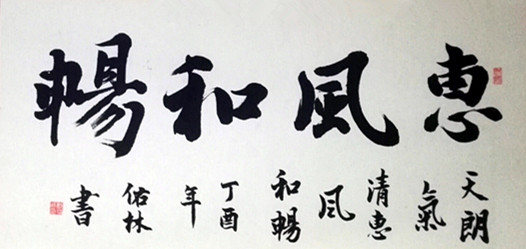 惠風和暢
天朗氣
清惠風
和暢
丁酉年
佑林書